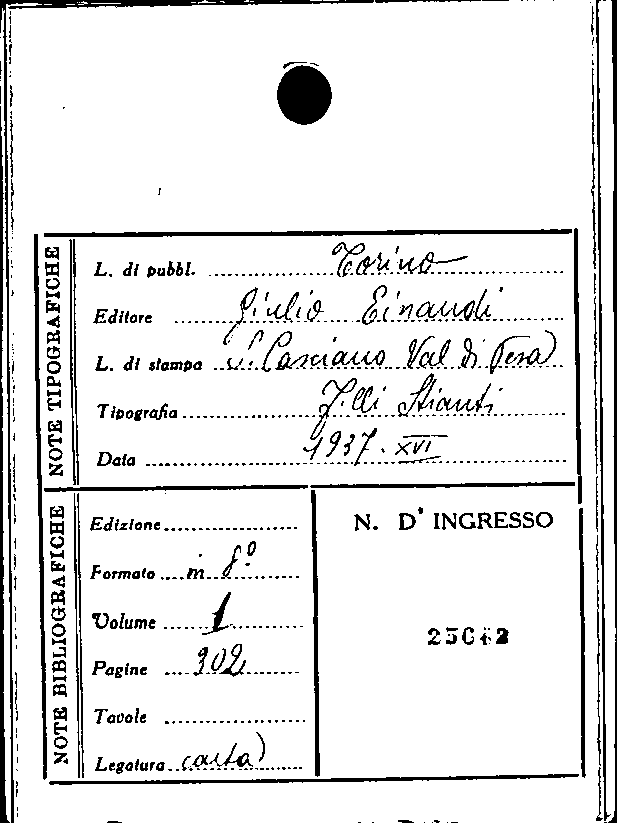 NOTE TIPOGRAFICHE
L. di pubbl. Torino
Editore Giulio Einaudi
L. di stampa S. Casciano Val di Pesa
Tipografia F.lli Stianti
Data 1937. XVI
NOTE BIBLIOGRAFICHE
Edizione
Formato in 8º
Volume 1
Pagine 302
Tavole
Legatura carta
N. D' INGRESSO